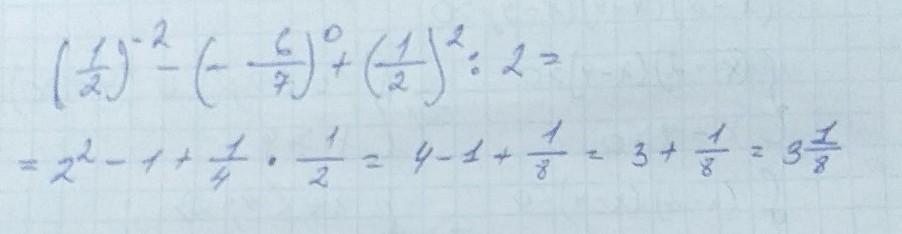 (1/2)⁻² - (- 6/7)⁰ + (1/2)² : 2 =
= 2² - 1 + 1/4 · 1/2 = 4 - 1 + 1/8 = 3 + 1/8 = 3 1/8